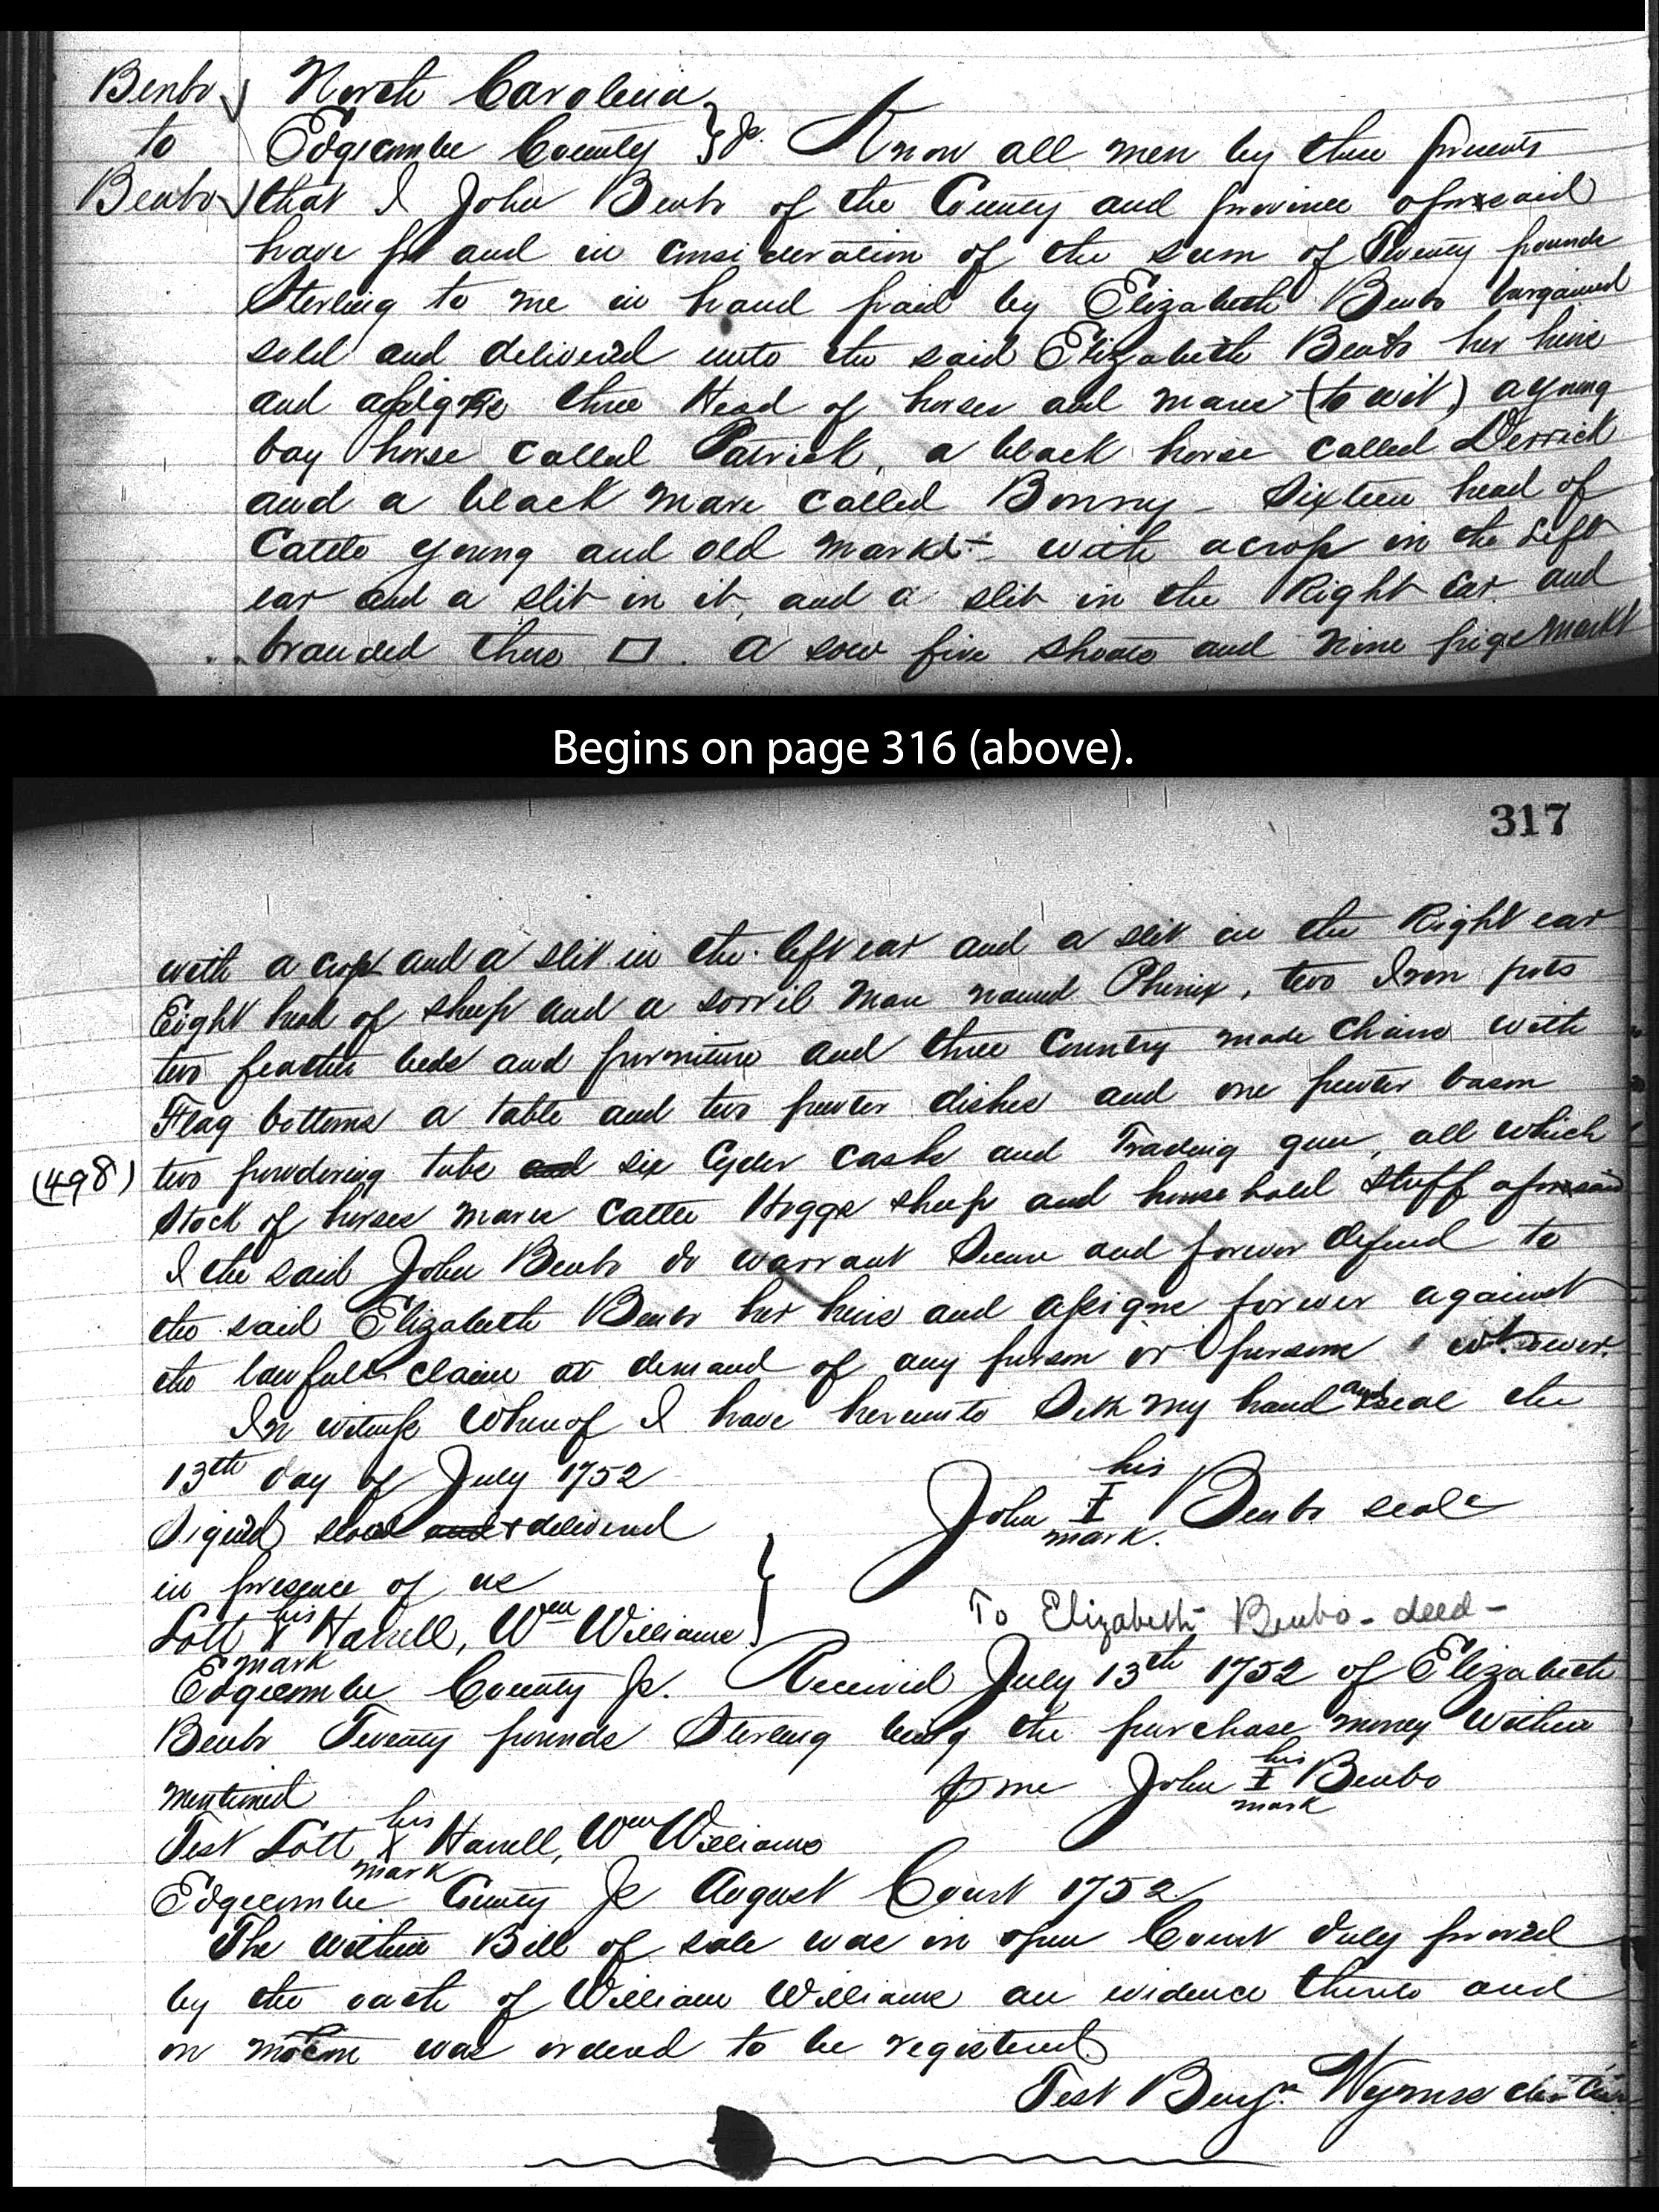 Benbo
to
Benbo
North Carolina
Edgecombe County } Sc. Know all men by these presents
that I John Benbo of the County and province aforesaid
have for and in consideration of the sum of Twenty pounds
Sterling to me in hand paid by Elizabeth Benbo bargained
sold and delivered unto the said Elizabeth Benbo her heirs
and assigns three Head of horses and mares (to wit) a young
bay horse called Patrick, a black horse called Derrick
and a black mare called Bonny - Sixteen head of
Cattle young and old markt with a crop in the Left
ear and a slit in it, and a slit in the Right Ear and
branded thus □. A sow five shoats and nine pigs markt
Begins on page 316 (above).
317
with a crop and a slit in the left ear and a slit in the Right ear
Eight head of sheep and a sorril mare named Phenix, two Iron pots
two feather beds and furniture and three Country made Chairs with
Flag bottoms a table and two pewter dishes and one pewter bason
(498) two powdering tubs and six Cyder casks and Trading gun, all which
Stock of horses mares Cattle Hoggs sheep and household stuff aforesaid
I the said John Benbo do warrant Secure and forever defend to
the said Elizabeth Benbo her heirs and assigns forever against
the lawfull claim or demand of any person or persons whatsoever.
In witness Whereof I have hereunto Sett my hand and seal the
13th day of July 1752
Signed seald and & delivered
in presence of us
Lott his X mark Harrell, Wm Williams }
John his I mark Benbo seal
To Elizabeth Benbo - deed -
Edgecombe County Sc. Received July 13th 1752 of Elizabeth
Benbo Twenty pounds Sterling being the purchase money within
mentioned
p me John his I mark Benbo
Test Lott his X mark Harrell, Wm Williams
Edgecombe County Sc August Court 1752
The within Bill of sale was in open Court duly proved
by the oath of William Williams an evidence thereto and
on motion was ordered to be registered
Test Benjn Wynns